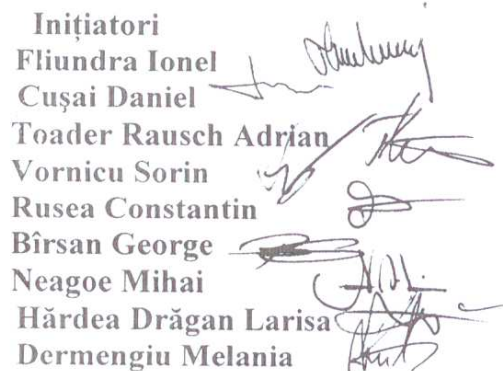 Inițiatori
Fliundra Ionel
Cușai Daniel
Toader Rausch Adrian
Vornicu Sorin
Rusea Constantin
Bîrsan George
Neagoe Mihai
Hărdea Drăgan Larisa
Dermengiu Melania